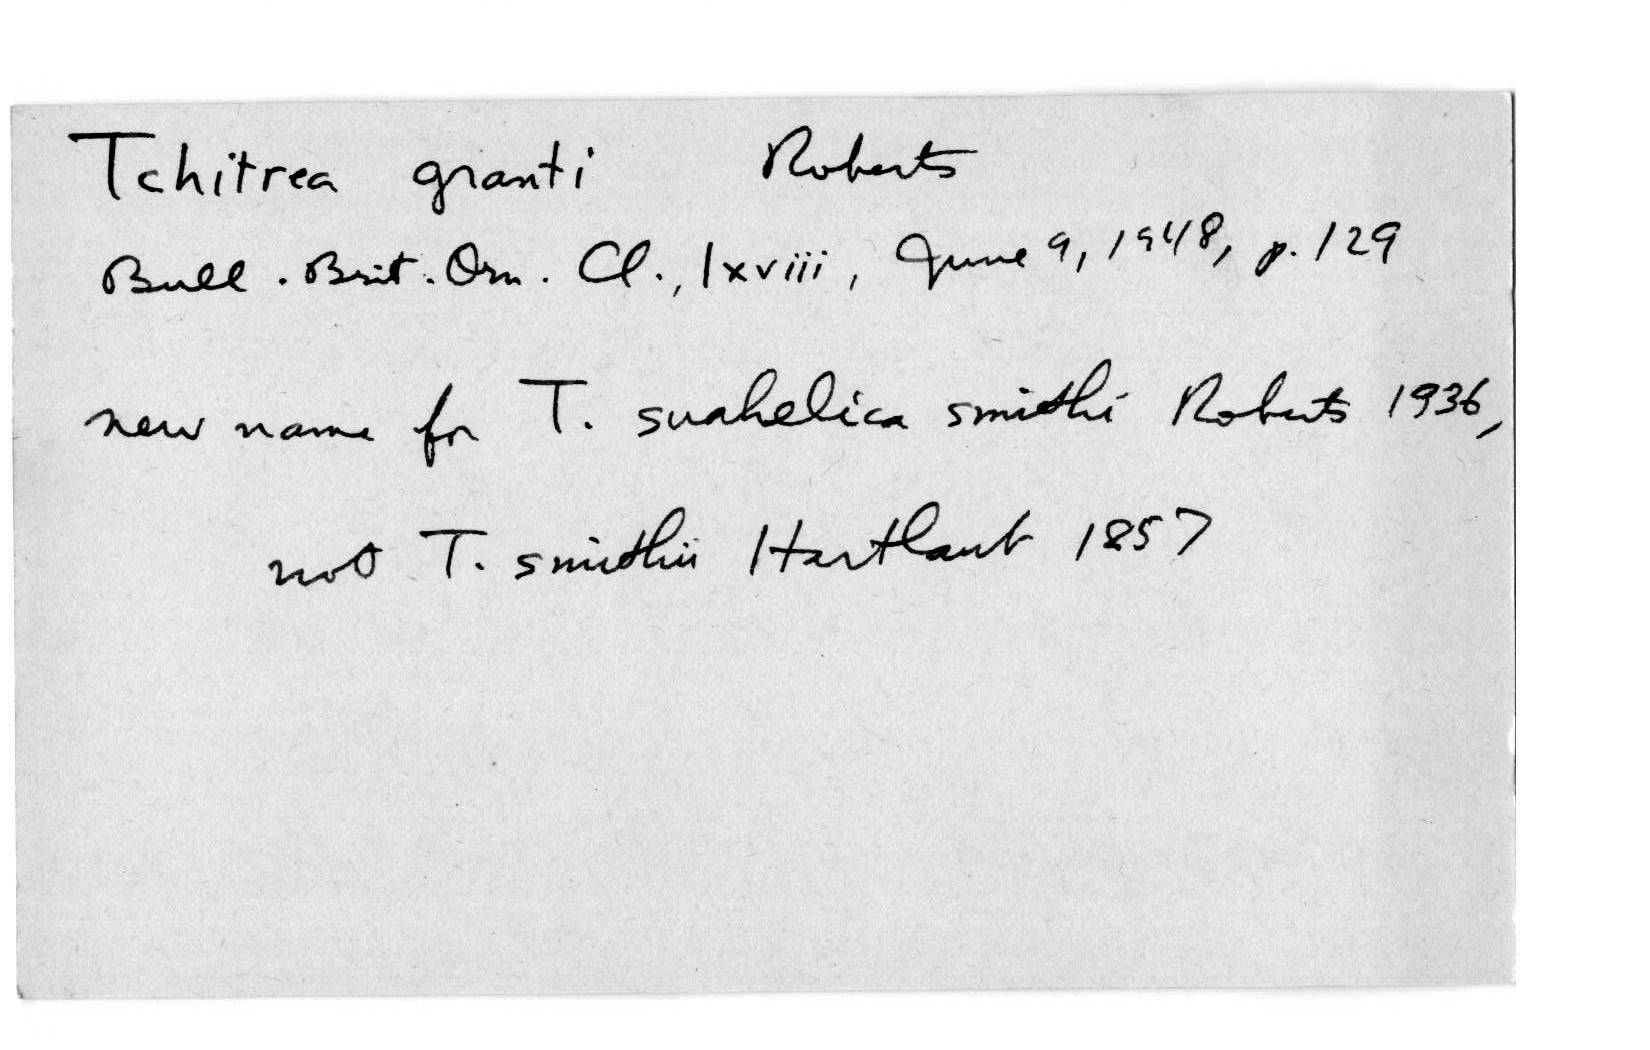 Tchitrea granti Roberts
Bull. Brit. Orn. Cl., lxviii, June 9, 1948, p. 129
new name for T. suahelica smithi Roberts 1936,
not T. smithii Hartlaub 1857